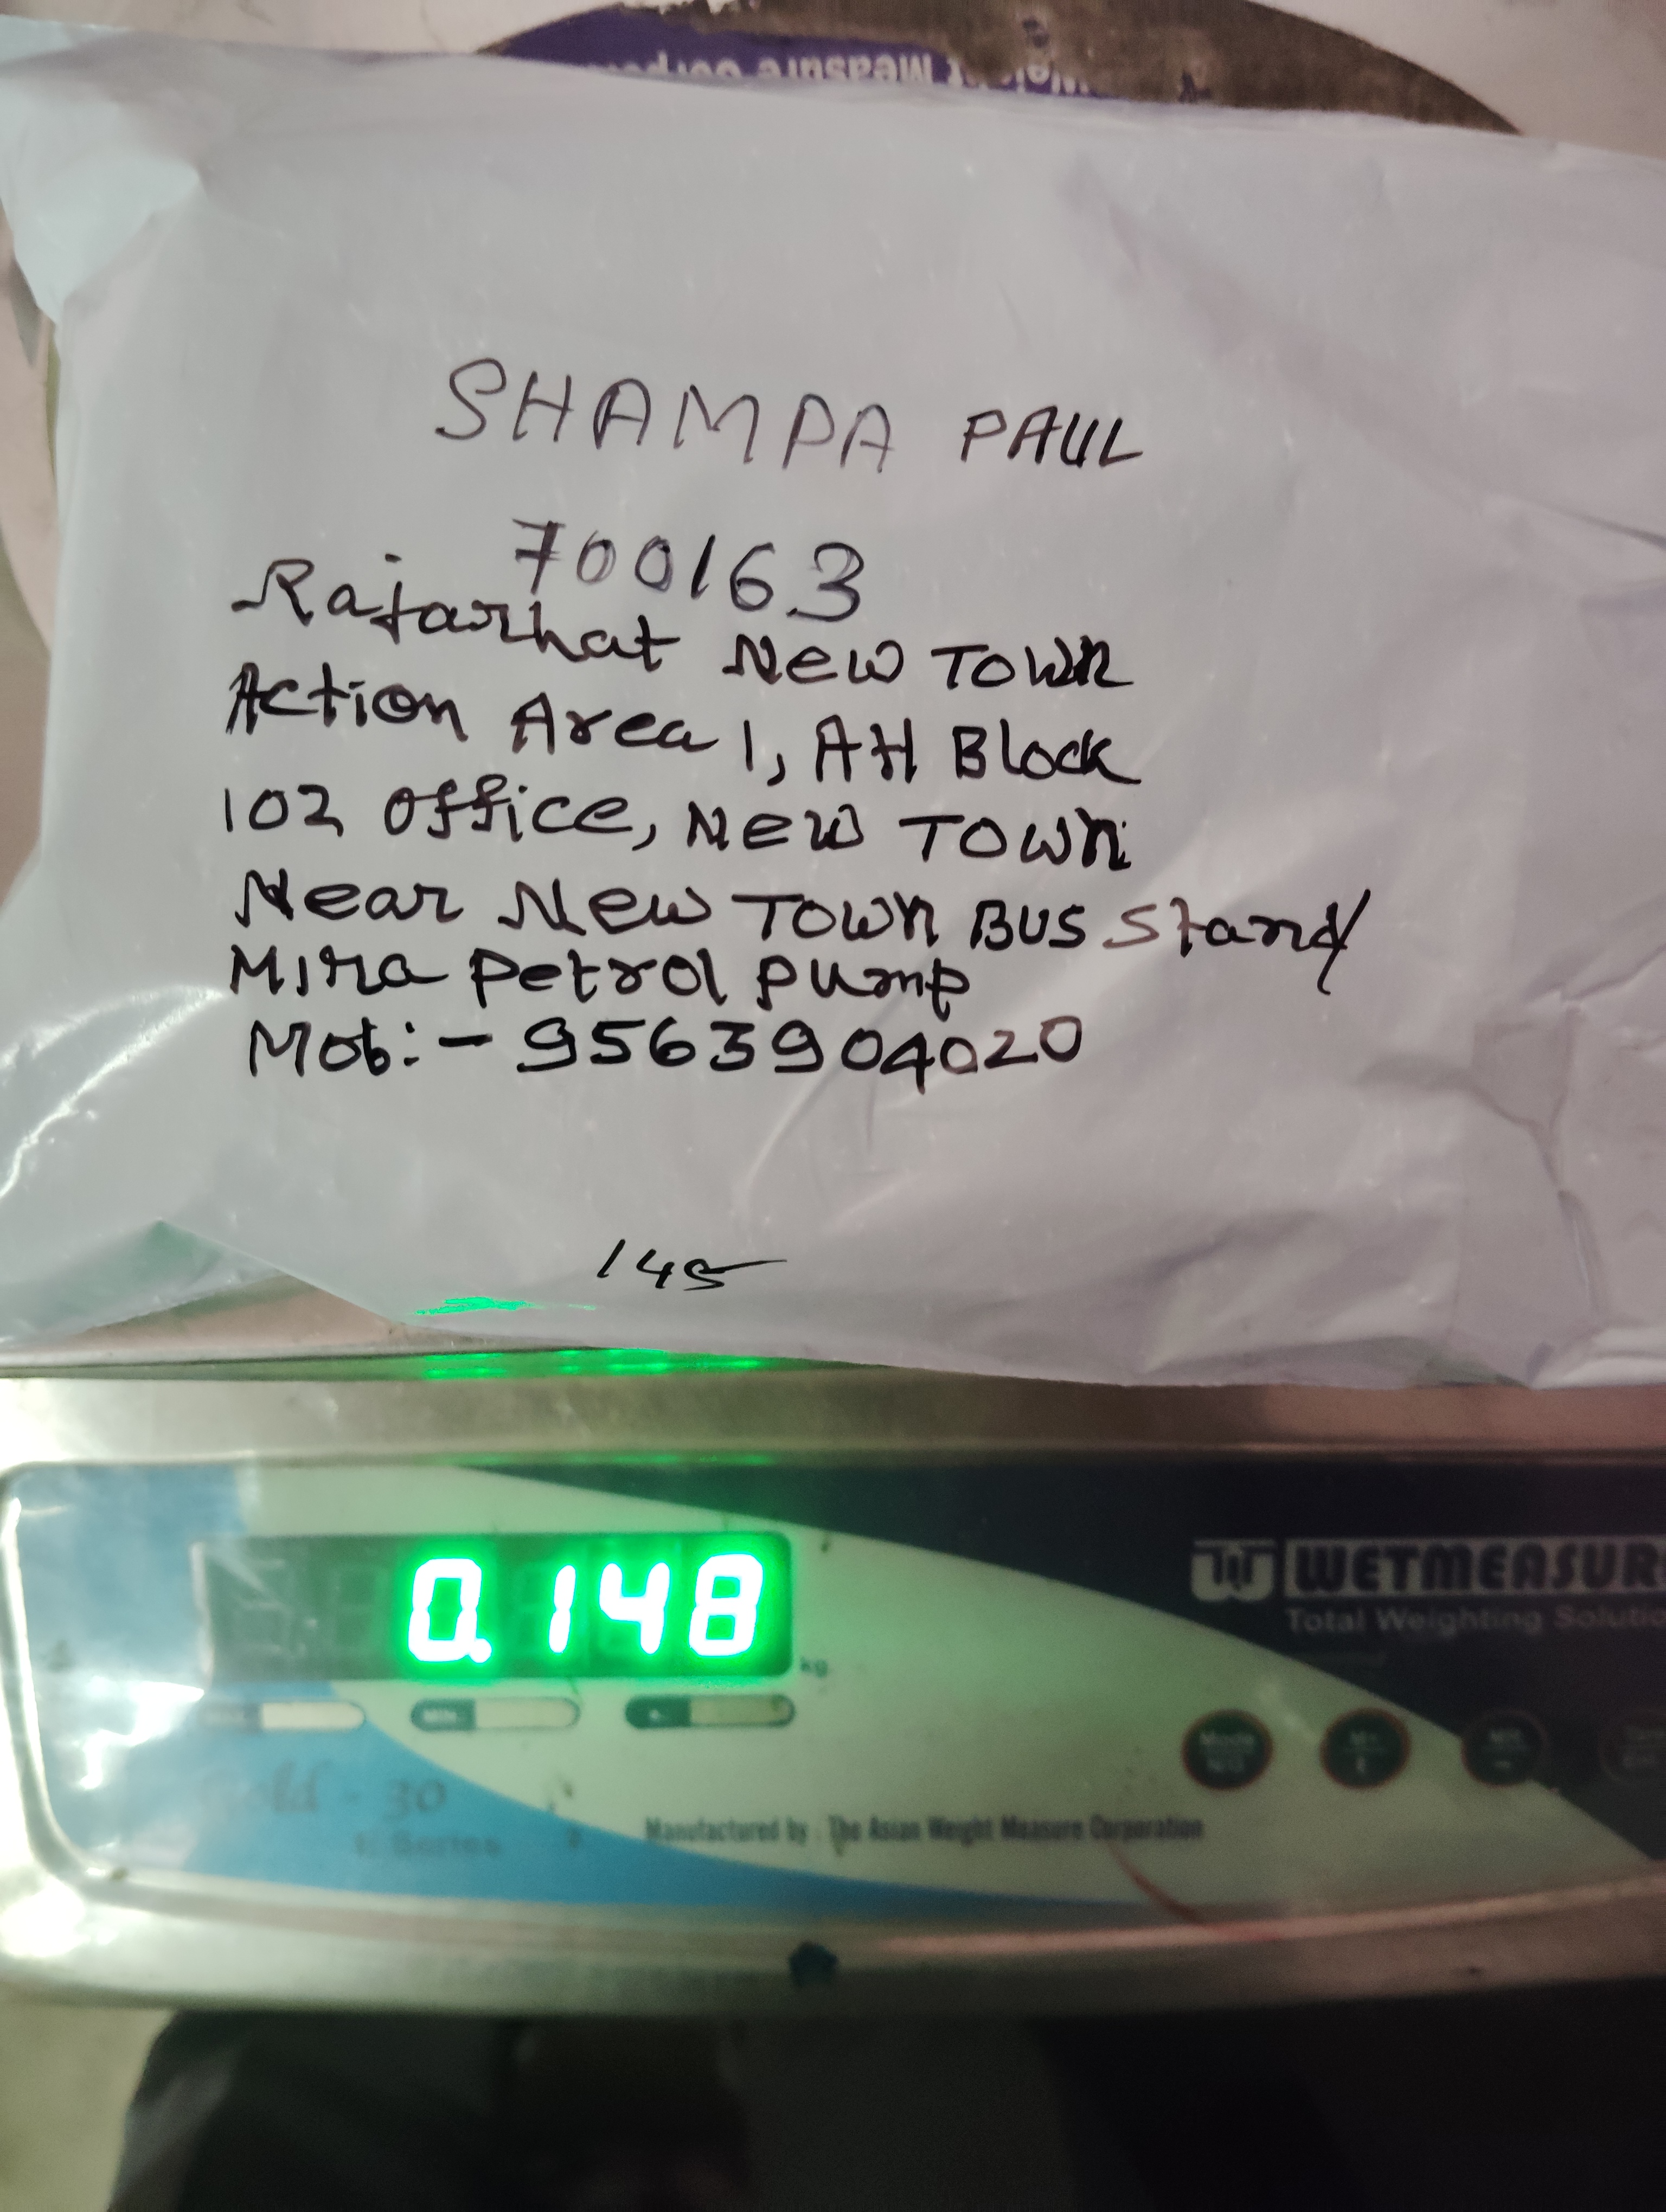 Weight Measure Corpor
SHAMPA PAUL
700163
Rajarhat New Town
Action Area 1, AH Block
102 office, New Town
Near New Town Bus Stand/
Mira Petrol Pump
Mob:- 9563904020
145
0.148
kg
WETMEASUR
Total Weighting Solutio
MAX
MIN.
e.
Gold - 30
E Series
Mode
M+
MR
Manufactured by : The Asian Weight Measure Corporation